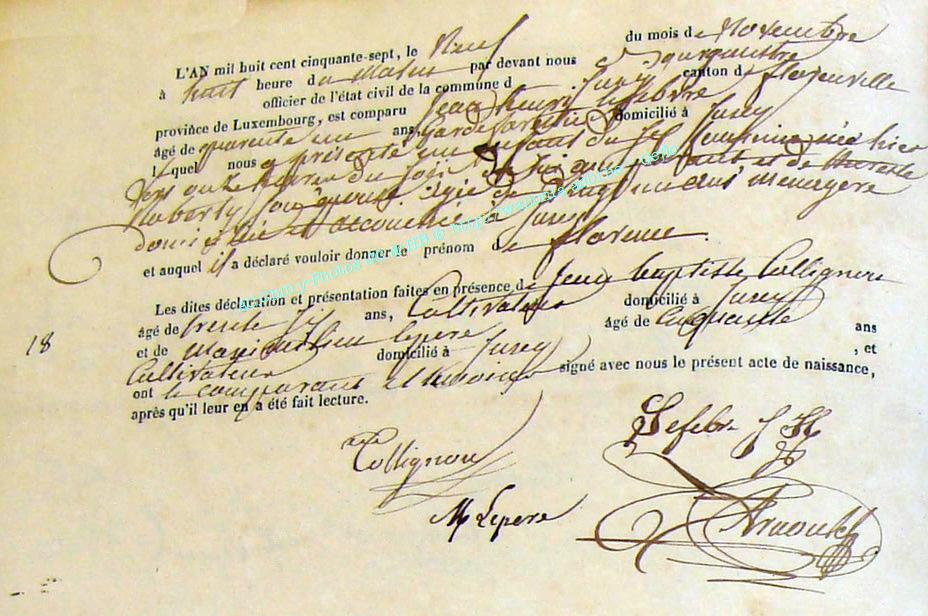 L'AN mil huit cent cinquante-sept, le Neuf du mois de Novembre
à huit heure du Matin par devant nous
officier de l'état civil de la commune d canton d florenville
province de Luxembourg, est comparu Jean henry Lefebvre
âgé de quarante un ans, garde forestier domicilié à Jusey
lequel nous a présenté un enfant du sexe feminin née hier
vers onze heures du soir de lui comparant et de
son épouse agée de vingt un ans menagere
domiciliée et accouchée à Jusey
et auquel il a déclaré vouloir donner le prénom de florence.
Les dites déclaration et présentation faites en présence de Jean baptiste Collignon
âgé de trente six ans, Cultivateur domicilié à Jusey
et de Maximilien lepere âgé de Cinquante ans
Cultivateur domicilié à Jusey , et
18
ont le comparant et temoins signé avec nous le présent acte de naissance,
après qu'il leur en a été fait lecture.
Collignon
Lefebvre J H
M Lepere